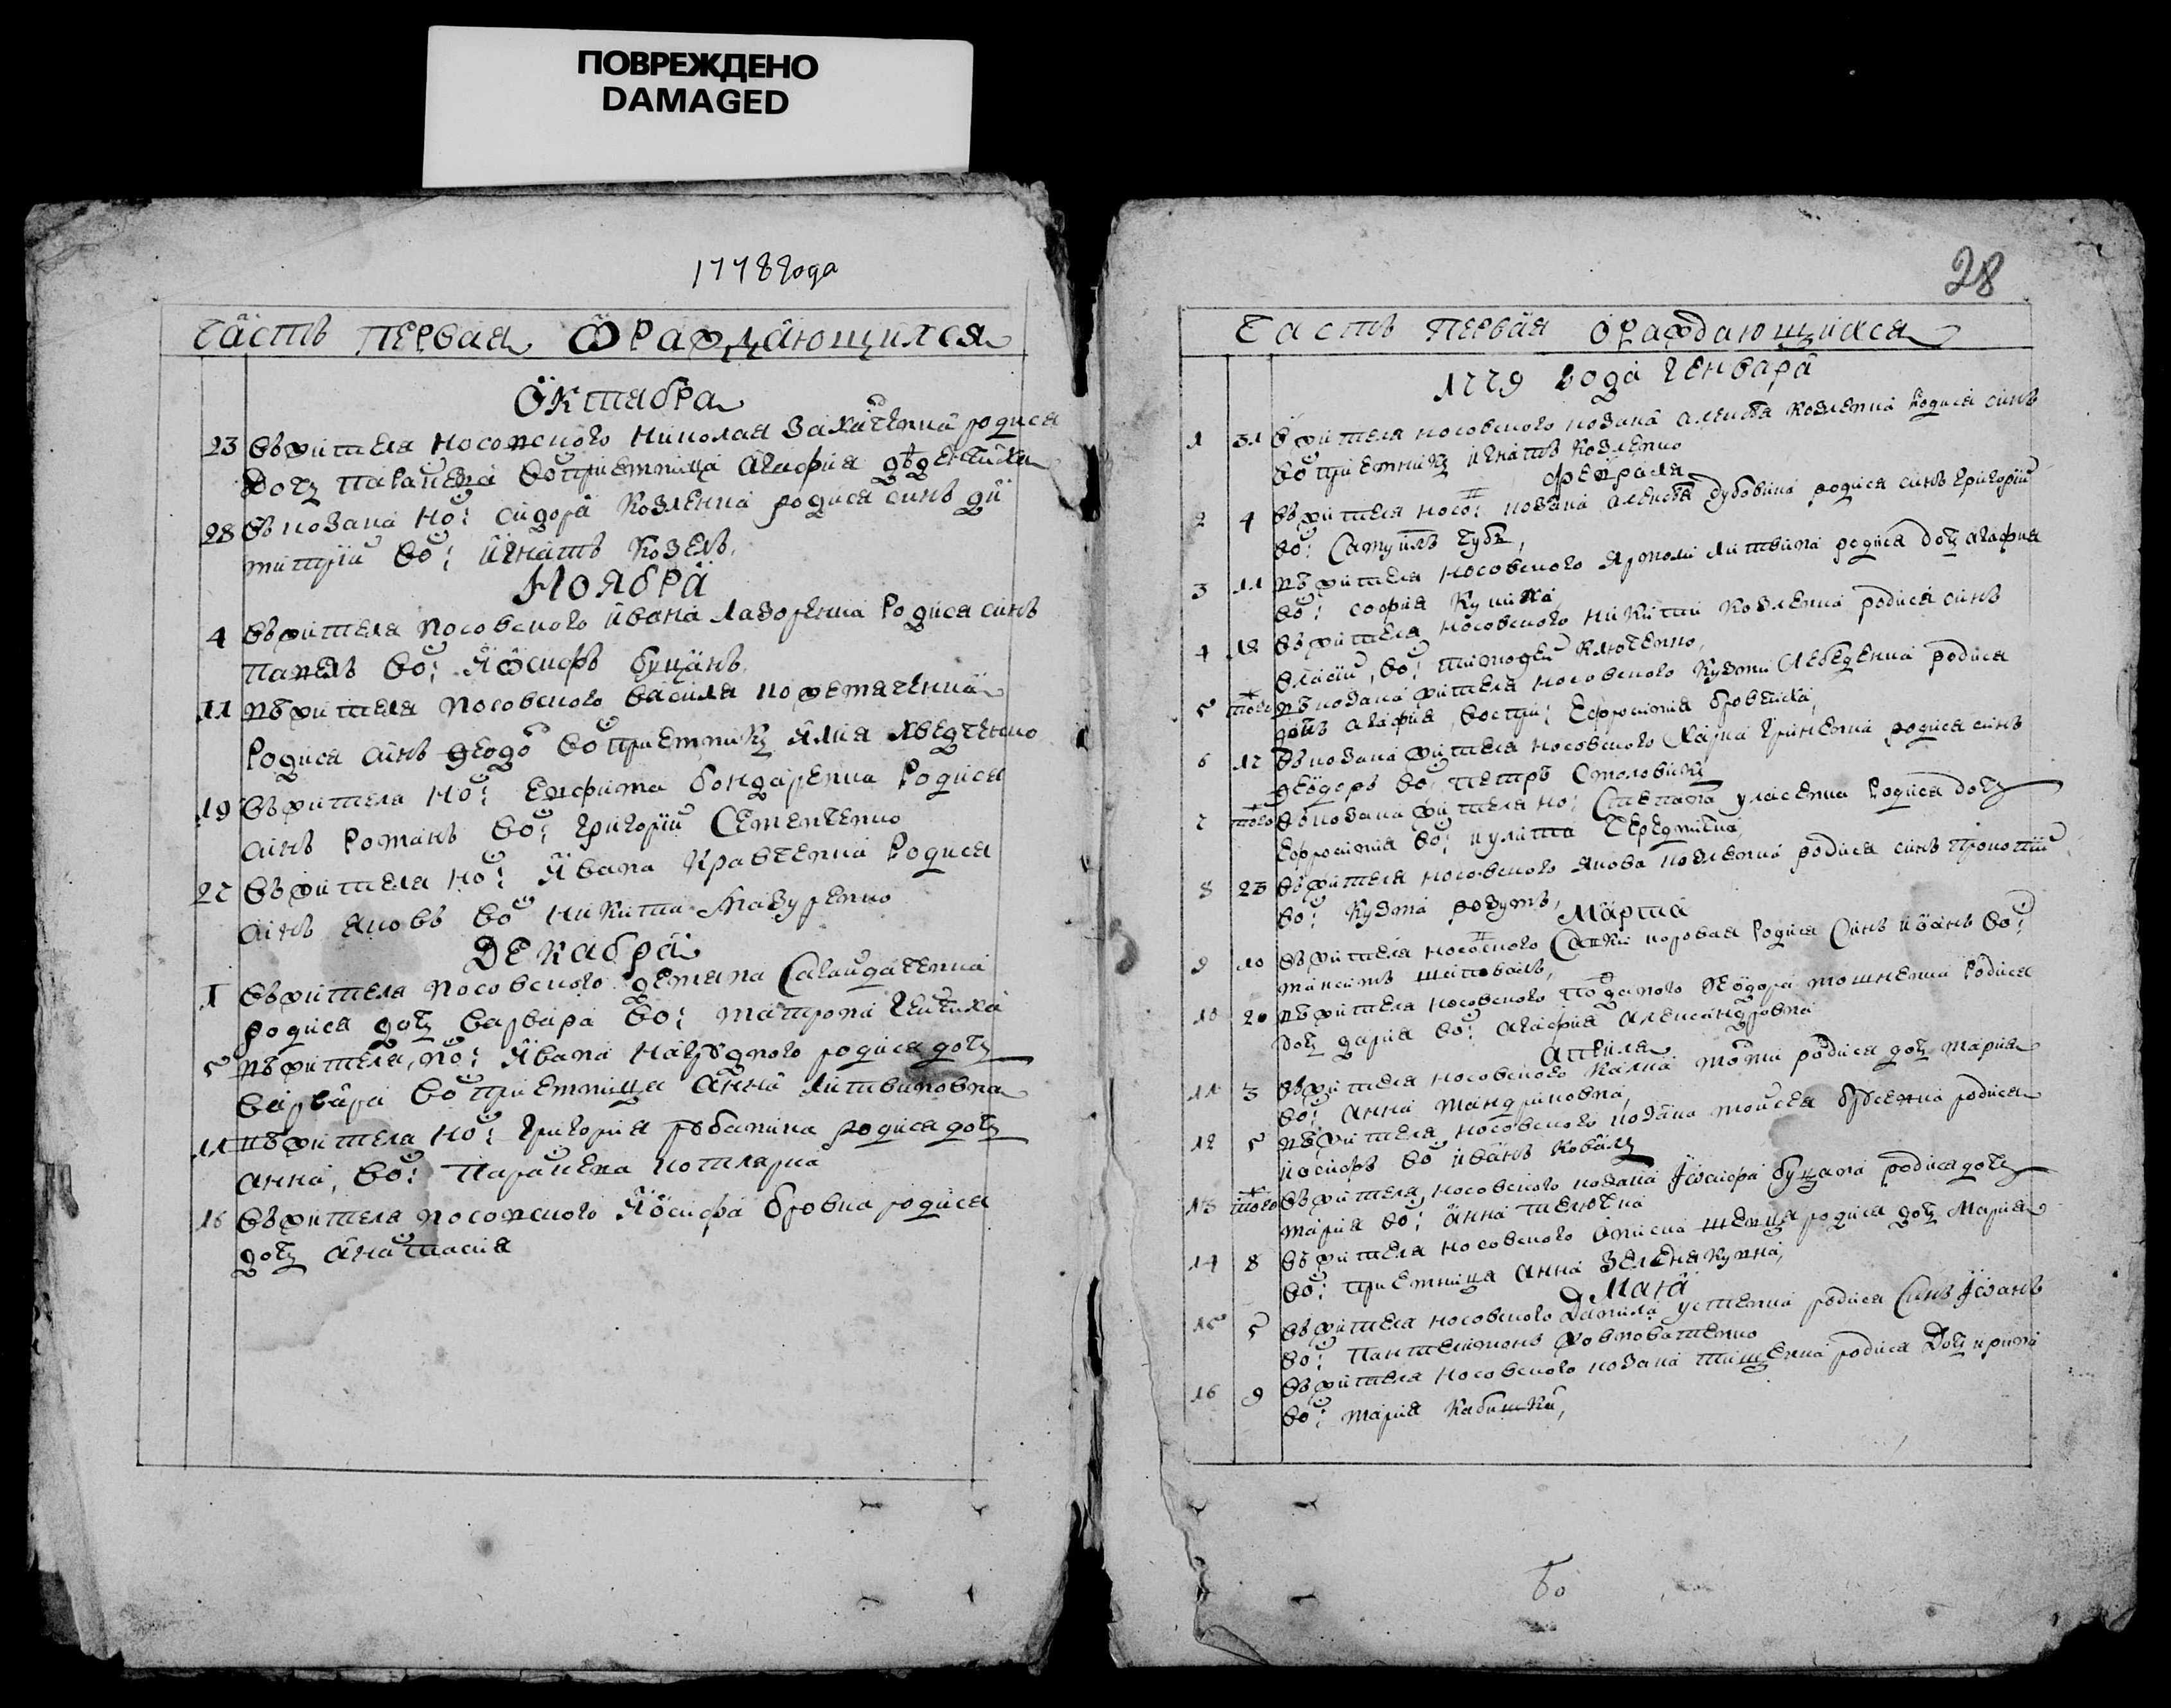 ПОВРЕЖДЕНО
DAMAGED
1778 года
Часть первая о раждающихся
Октября
23 въ жителя носовского Николая Захаченка родися
дочъ Параскева воспріемница Агафия
28 въ козака но: Сидора Козленка родися синъ ди
митрій во: Игнатъ Козелъ
Ноября
4 въ жителя носовского Ивана Лазоренка родися синъ
Павелъ во: Иосифъ Буцанъ
11 въ жителя носовского Василя
родися синъ Феодо воспріемникъ Илия
19 въ жителя но: Евфима Бондаренка родися
синъ Романъ во: Григорій Семенченко
27 въ жителя но: Ивана Кравченка родися
синъ Яковъ во Никита Мазуренко
Декабря
1 въ жителя носовского Демяна Сагайдаченка
родися дочъ Варвара во: Матрона
5 въ жителя но: Ивана родися дочъ
Варвара воспріемница Анна Литвиновна
11 въ жителя но: Григория Рубаника родися дочъ
Анна, во: Параскева Котлярка
16 въ жителя носовского Иосифа Бровка родися
дочъ Анастасия
28
Часть первая о раждающихся
1779 года Генваря
1 31 в жителя носовского козака Алексея Козленка родися синъ
воспріемникъ Игнатъ Козленко
февраля
2 4 въ жителя носо: козака Алексея Дубовика родися синъ Григорій
во: Самуилъ Чубъ,
3 11 въ жителя носовского Ярмоли Литвина родися дочъ Агафия
во: София Кулиха
4 12 въ жителя носовского Никити Козленка родися синъ
Власій, во: Тимофей Ключенко,
5 того въ козака жителя носовского Кузми Лебеденка родися
дочъ Агафия, воспри: Ефросиния Бровчиха,
6 17 въ козака жителя носовского Карпа Гриненка родися синъ
Феодоръ во: Петръ Столовик
7 того въ козака жителя но: Степана Уласенка родися дочъ
Ефросиния во: Иулита Чередничка,
8 23 въ жителя носовского Якова Козленка родися синъ Прокопій
во: Кузма Розумъ,
Марта
9 10 въ жителя носовского Савки Коровая родися синъ Иванъ во:
Максимъ Шаповалъ,
10 20 въ жителя носовского поданого Феодора Мошненка родися
дочъ Дария во: Агафия Александровна
Априля
11 3 въ жителя носовского родися дочъ Мария
во: Анна Мандриковна,
12 5 въ жителя носовского козака Моисея родися
Иосифъ во Иванъ Ковалъ
13 того въ жителя, носовского козака Иосифа Буцана родися дочъ
Мария во: Анна
14 8 въ жителя носовского Ониска Шевця родися дочъ Мария
во: приемница Анна
Мая
15 5 въ жителя носовского Данила Устенка родися синъ Иоанъ
во: Пантелимонъ Жовноватенко
16 9 въ жителя носовского козака Тищенка родися дочъ Ирина
во: Мария